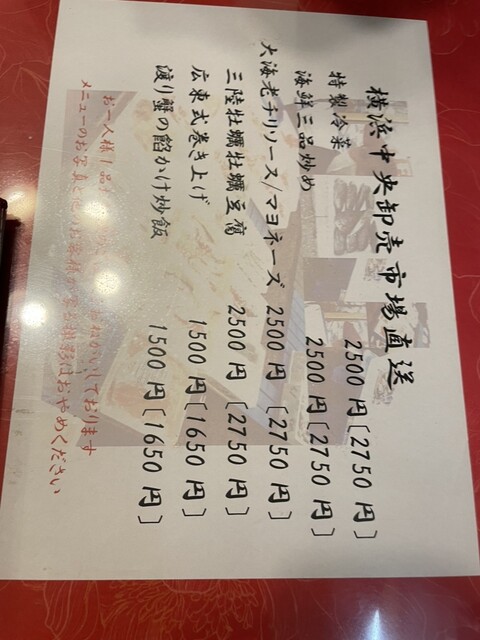 横浜中央卸売市場直送
特製冷菜 2500円〔2750円〕
海鮮三品炒め 2500円〔2750円〕
大海老チリソース/マヨネーズ 2500円〔2750円〕
三陸牡蠣牡蠣豆腐 2500円〔2750円〕
広東式巻き上げ 1500円〔1650円〕
渡り蟹の餡かけ炒飯 1500円〔1650円〕
お一人様1品 おねがいしております
メニューのお写真と他のお客様 撮影はおやめください